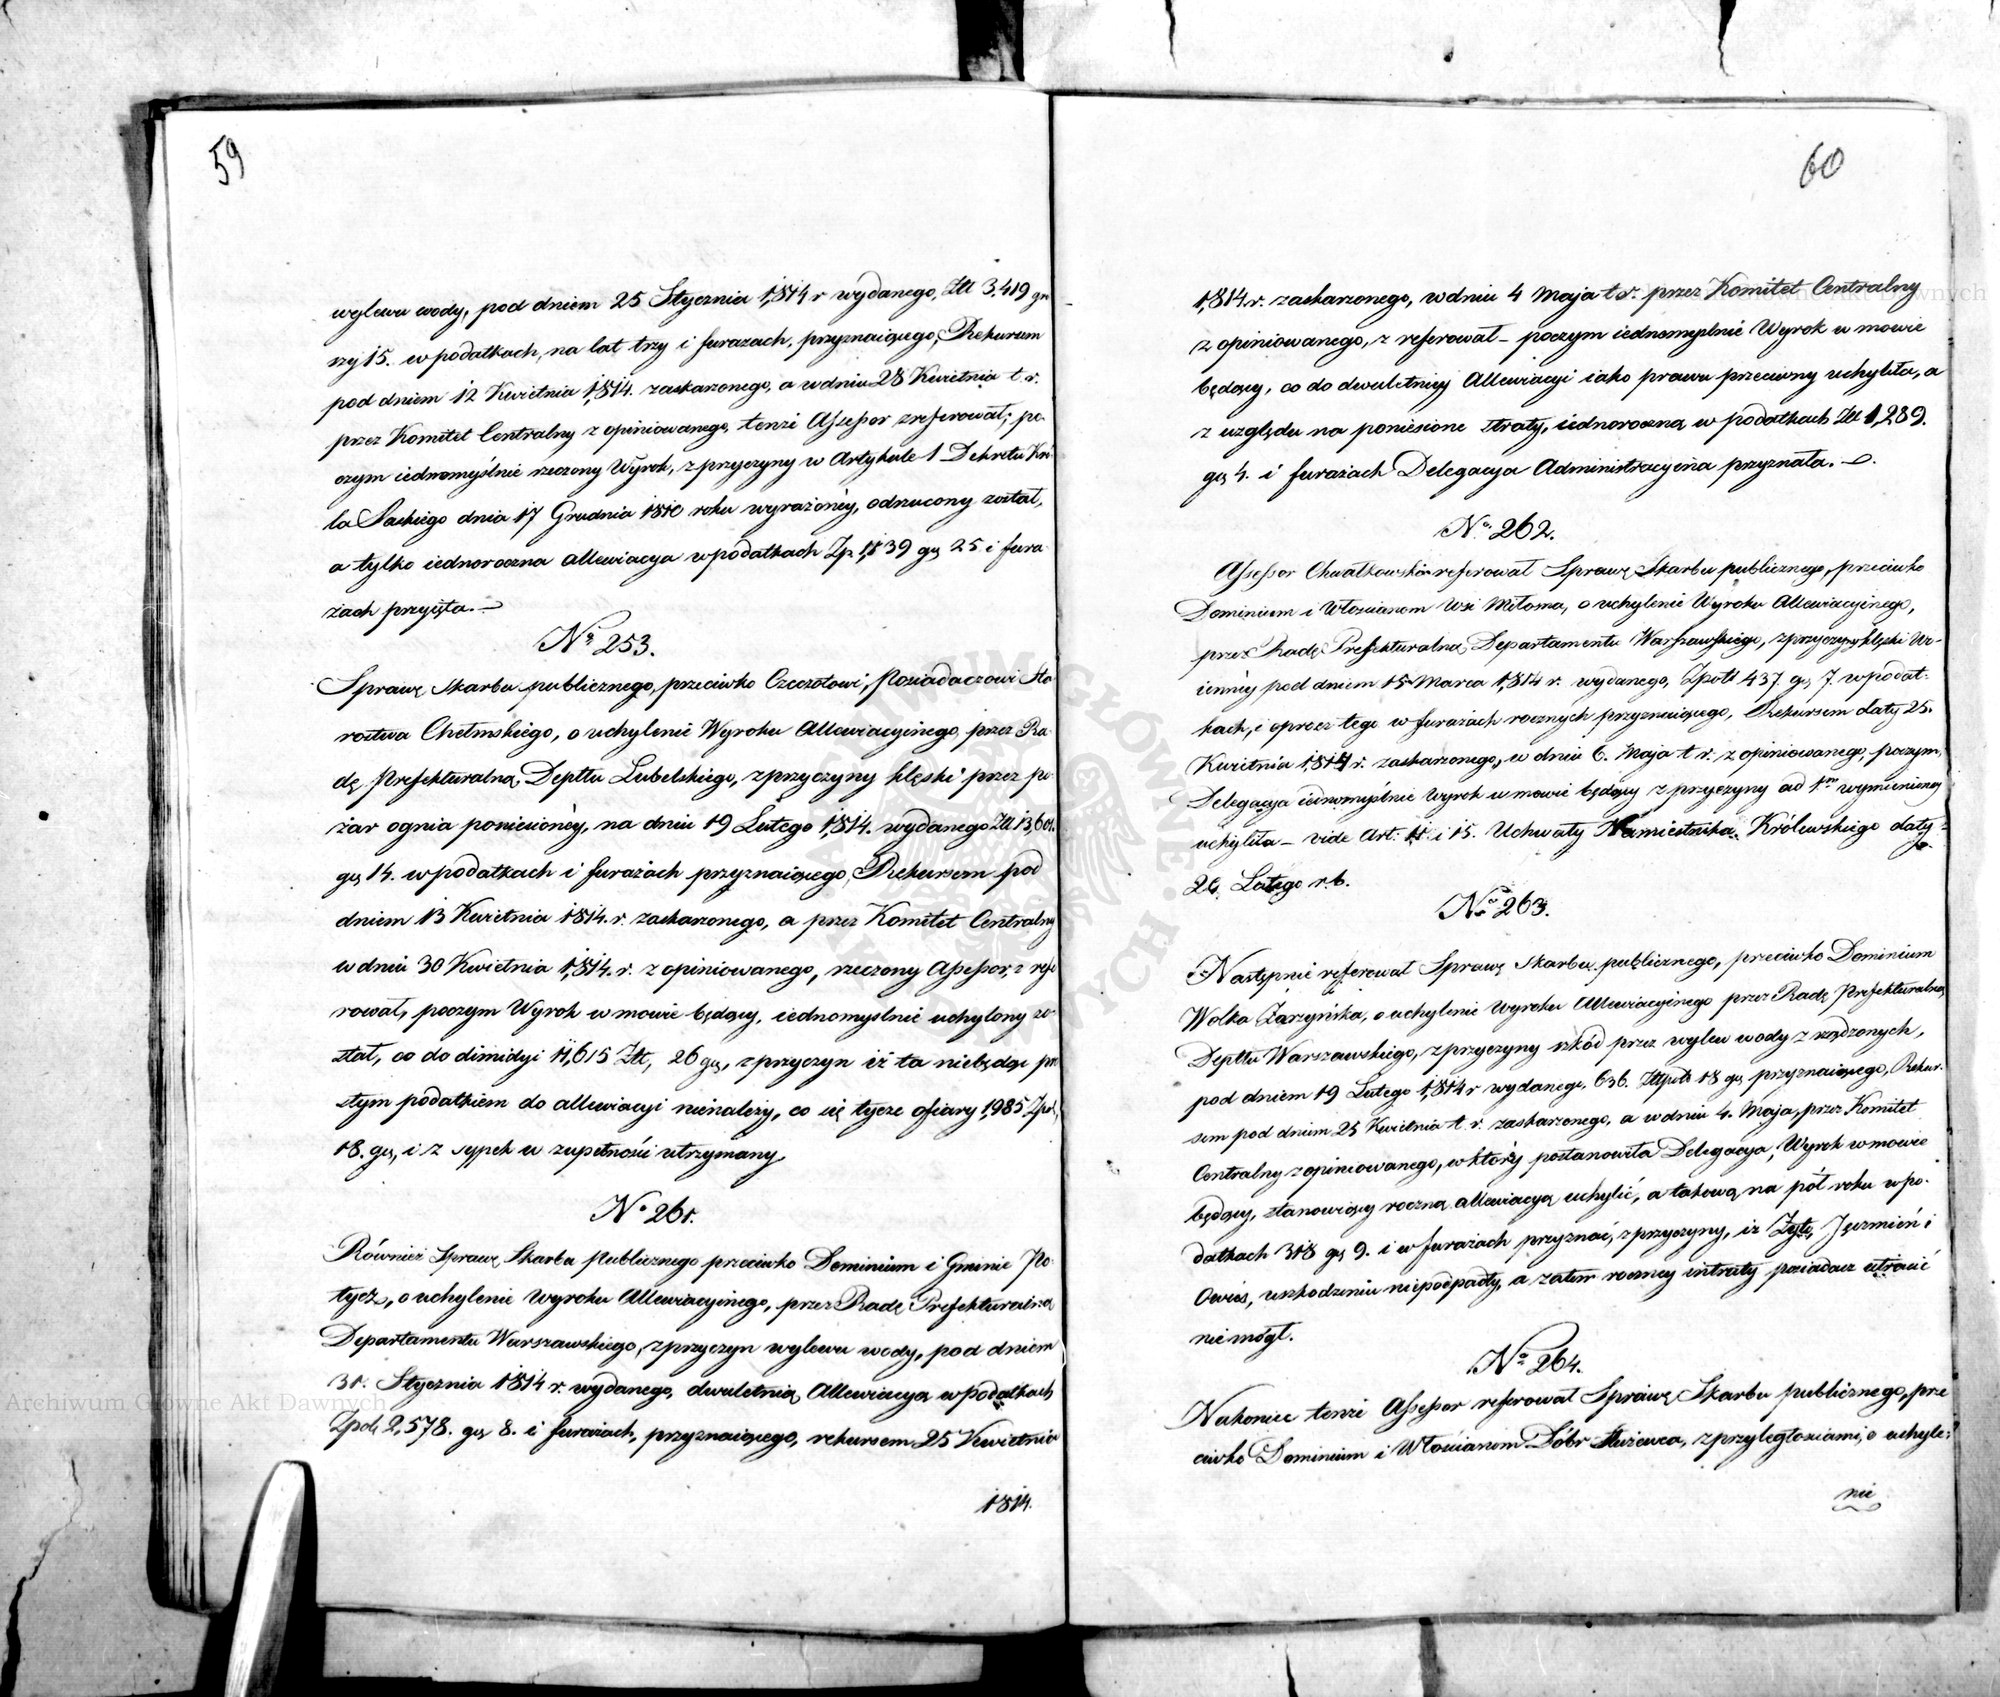 59
wylewu wody, pod dniem 25 Stycznia 1,814 r wydanego, Złł 3,419 gr
szy 15. w podatkach, na lat trzy i furażach, przyznaiącego, Rekursem
pod dniem 12 Kwietnia 1,814. zaskarzonego, a w dniu 28 Kwietnia t. r.
przez Komitet Centralny z opiniowanego, tenże Assessor zreferował; po-
czym iednomyślnie rzeczony Wyrok, z przyczyny w Artykule 1 Dekretu Kró-
la Saskiego dnia 17 Grudnia 1810 roku wyrażonéy, odrzucony został,
a tylko iednoroczna allewiacya w podatkach Zp 1,139 gę 25. i fura-
żach przyięta.
No 253.
Sprawę Skarbu publicznego, przeciwko Czeczotowi, Posiadaczowi Sta-
rostwa Chełmskiego, o uchylenie Wyroku Allewiacyinego, przez Ra-
dę Prefekturalną, Depttu Lubelskiego, z przyczyny klęski przez po-
żar ognia poniesionéy, na dniu 19 Lutego 1,814. wydanego Złł 13,601.
gę 14. w podatkach i furażach przyznaiącego, Rekursem pod
dniem 13 Kwietnia 1,814. r. zaskarzonego, a przez Komitet Centralny
w dniu 30 Kwietnia 1,814. r. z opiniowanego, rzeczony Assessor, z refe-
rował, poczym Wyrok w mowie będący, iednomyslnie uchylony zo-
stał, co do dimidyi 11,615 Złł, 26 gę, z przyczyn iż ta niebędąc pro
stym podatkiem do allewiacyi nienależy, co się tycze ofiary 1,985 Zpł,
18. gę, i z sypek w zupełności utrzymany.
No 261.
Również Sprawę Skarbu Publicznego przeciwko Dominium i Gminie Po-
tycz, o uchylenie Wyroku Allewiacyinego, przez Radę Prefekturalną
Departamentu Warszawskiego, z przyczyn wylewu wody, pod dniem
31. Stycznia 1814 r. wydanego, dwuletnią Allewiacyą w podatkach
Zpol 2,578. gę 8. i furażach, przyznaiącego, rekursem 25 Kwietnia
1814.
60
1,814. r. zaskarzonego, w dniu 4 Maja t. r. przez Komitet Centralny
z opiniowanego, z referował – poczym iednomyslnie Wyrok w mowie
będący, co do dwuletniéy Allewiacyi iako prawu przeciwny uchyliła, a
z względu na poniesione straty, iednoroczną w podatkach Złł 1,289.
gę 4. i furażach Delegacya Administracyina przyznała.
No 262.
Assessor Chwalkowski referował Sprawę Skarbu publicznego, przeciwko
Dominium i Włoscianom Wsi Miłosna, o uchylenie Wyroku Allewiacyinego,
przez Radę Prefekturalną Departamentu Warszawskiego, z przyczyny klęski Wo-
ienney pod dniem 15 Marca 1,814 r. wydanego, Zpoll 437 gę 7. w podat-
kach, i oprocz tego w furażach rocznych przyznaiącego, Rekursem daty 25.
Kwietnia 1,814 r. zaskarzonego, w dniu 6. Maja t r. z opiniowanego, poczym,
Delegacya iednomyślnie Wyrok w mowie będący z przyczyny ad 1m wymienioney
uchyliła – vide Art: 11. i 15. Uchwały Namiestnika Królewskiego daty
26 Lutego r. b.
No 263.
Następnie referował Sprawę Skarbu publicznego, przeciwko Dominium
Wolka Zarzyńska, o uchylenie Wyroku Allewiacyinego przez Radę Prefekturalną
Depttu Warszawskiego, z przyczyny szkód przez wylew wody z rządzonych,
pod dniem 19 Lutego 1,814 r wydanego, 636. Złłpoll 18 gę przyznaiącego, Rekur-
sem pod dniem 25 Kwietnia t. r. zaskarzonego, a w dniu 4. Maja, przez Komitet
Centralny z opiniowanego, w który postanowiła Delegacya, Wyrok w mowie
będący, stanowiący roczną allewiacyą uchylić, a takową na pół roku w po-
datkach 318 gę 9. i w furażach przyznać, z przyczyny, iż Żyto, Jęczmień i
Owies, uszkodzeniu niepodpadły, a zatem roczney intraty posiadacz utracić
nie mógł.
No 264.
Nakoniec tenże Assessor referował Sprawę Skarbu publicznego, prze
ciwko Dominium i Włoscianom Dóbr Służewca, z przyległosciami, o uchyle-
nie